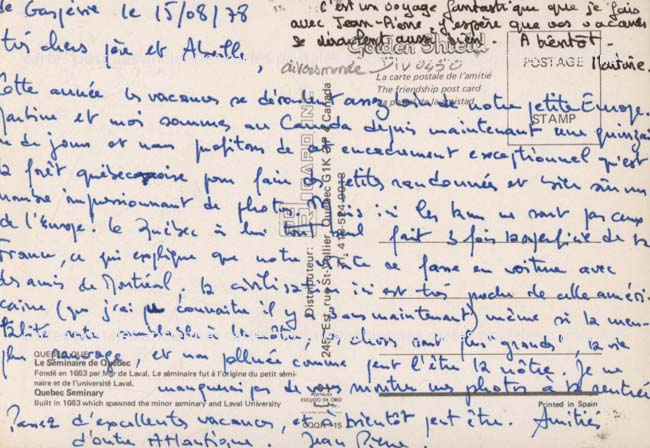 de Gaspésie le 15/08/78
très chers père et Abeille,
C'est un voyage fantastique que je fais
avec Jean-Pierre j'espère que vos vacances
se déroulent aussi bien.
A bientôt.
Martine.
Golden Shield
aivoasmonde DIV0450
La carte postale de l'amitié
The friendship post card
La postal de la amistad
POSTAGE
STAMP
Cette année les vacances se déroulent assez loin de notre petite Europe.
Martine et moi sommes au Canada depuis maintenant une quinzai
ne de jours et nous profitons de cet encadrement exceptionnel qu'est
la forêt québecoise pour faire des petites randonnées et bien sûr un
nombre impressionnant de photos. Mais ici les km ne sont pas ceux
de l'Europe. le Québec à lui tout seul fait 3 fois la superficie de la
France, ce qui explique que notre visite se fasse en voiture avec
des amis de Montréal. la civilisation ici est très proche de celle améri-
caine (que j'ai pu connaitre il y a 2 ans maintenant) même si la men-
talité reste semblable à la nôtre, les choses sont plus "grands", la vie
plus sauvage, et non polluée comme peut l'être la nôtre. Je ne
manquerai pas de vous montrer mes photos à la rentrée
Passez d'excellentes vacances, et à bientôt peut être. Amitiés
d'outre Atlantique. Jean Pierre
Distributeur:
245 Est, rue St-Vallier, Québec G1K 3P Canada
QUEBEC, QUE.
Le Séminaire de Québec
Fondé en 1663 par Mgr de Laval. Le séminaire fut à l'origine du petit sémi-
naire et de l'université Laval.
Quebec Seminary
Built in 1663 which spawned the minor seminary and Laval University
POSTALES
ESCUDO DE ORO
Printed in Spain